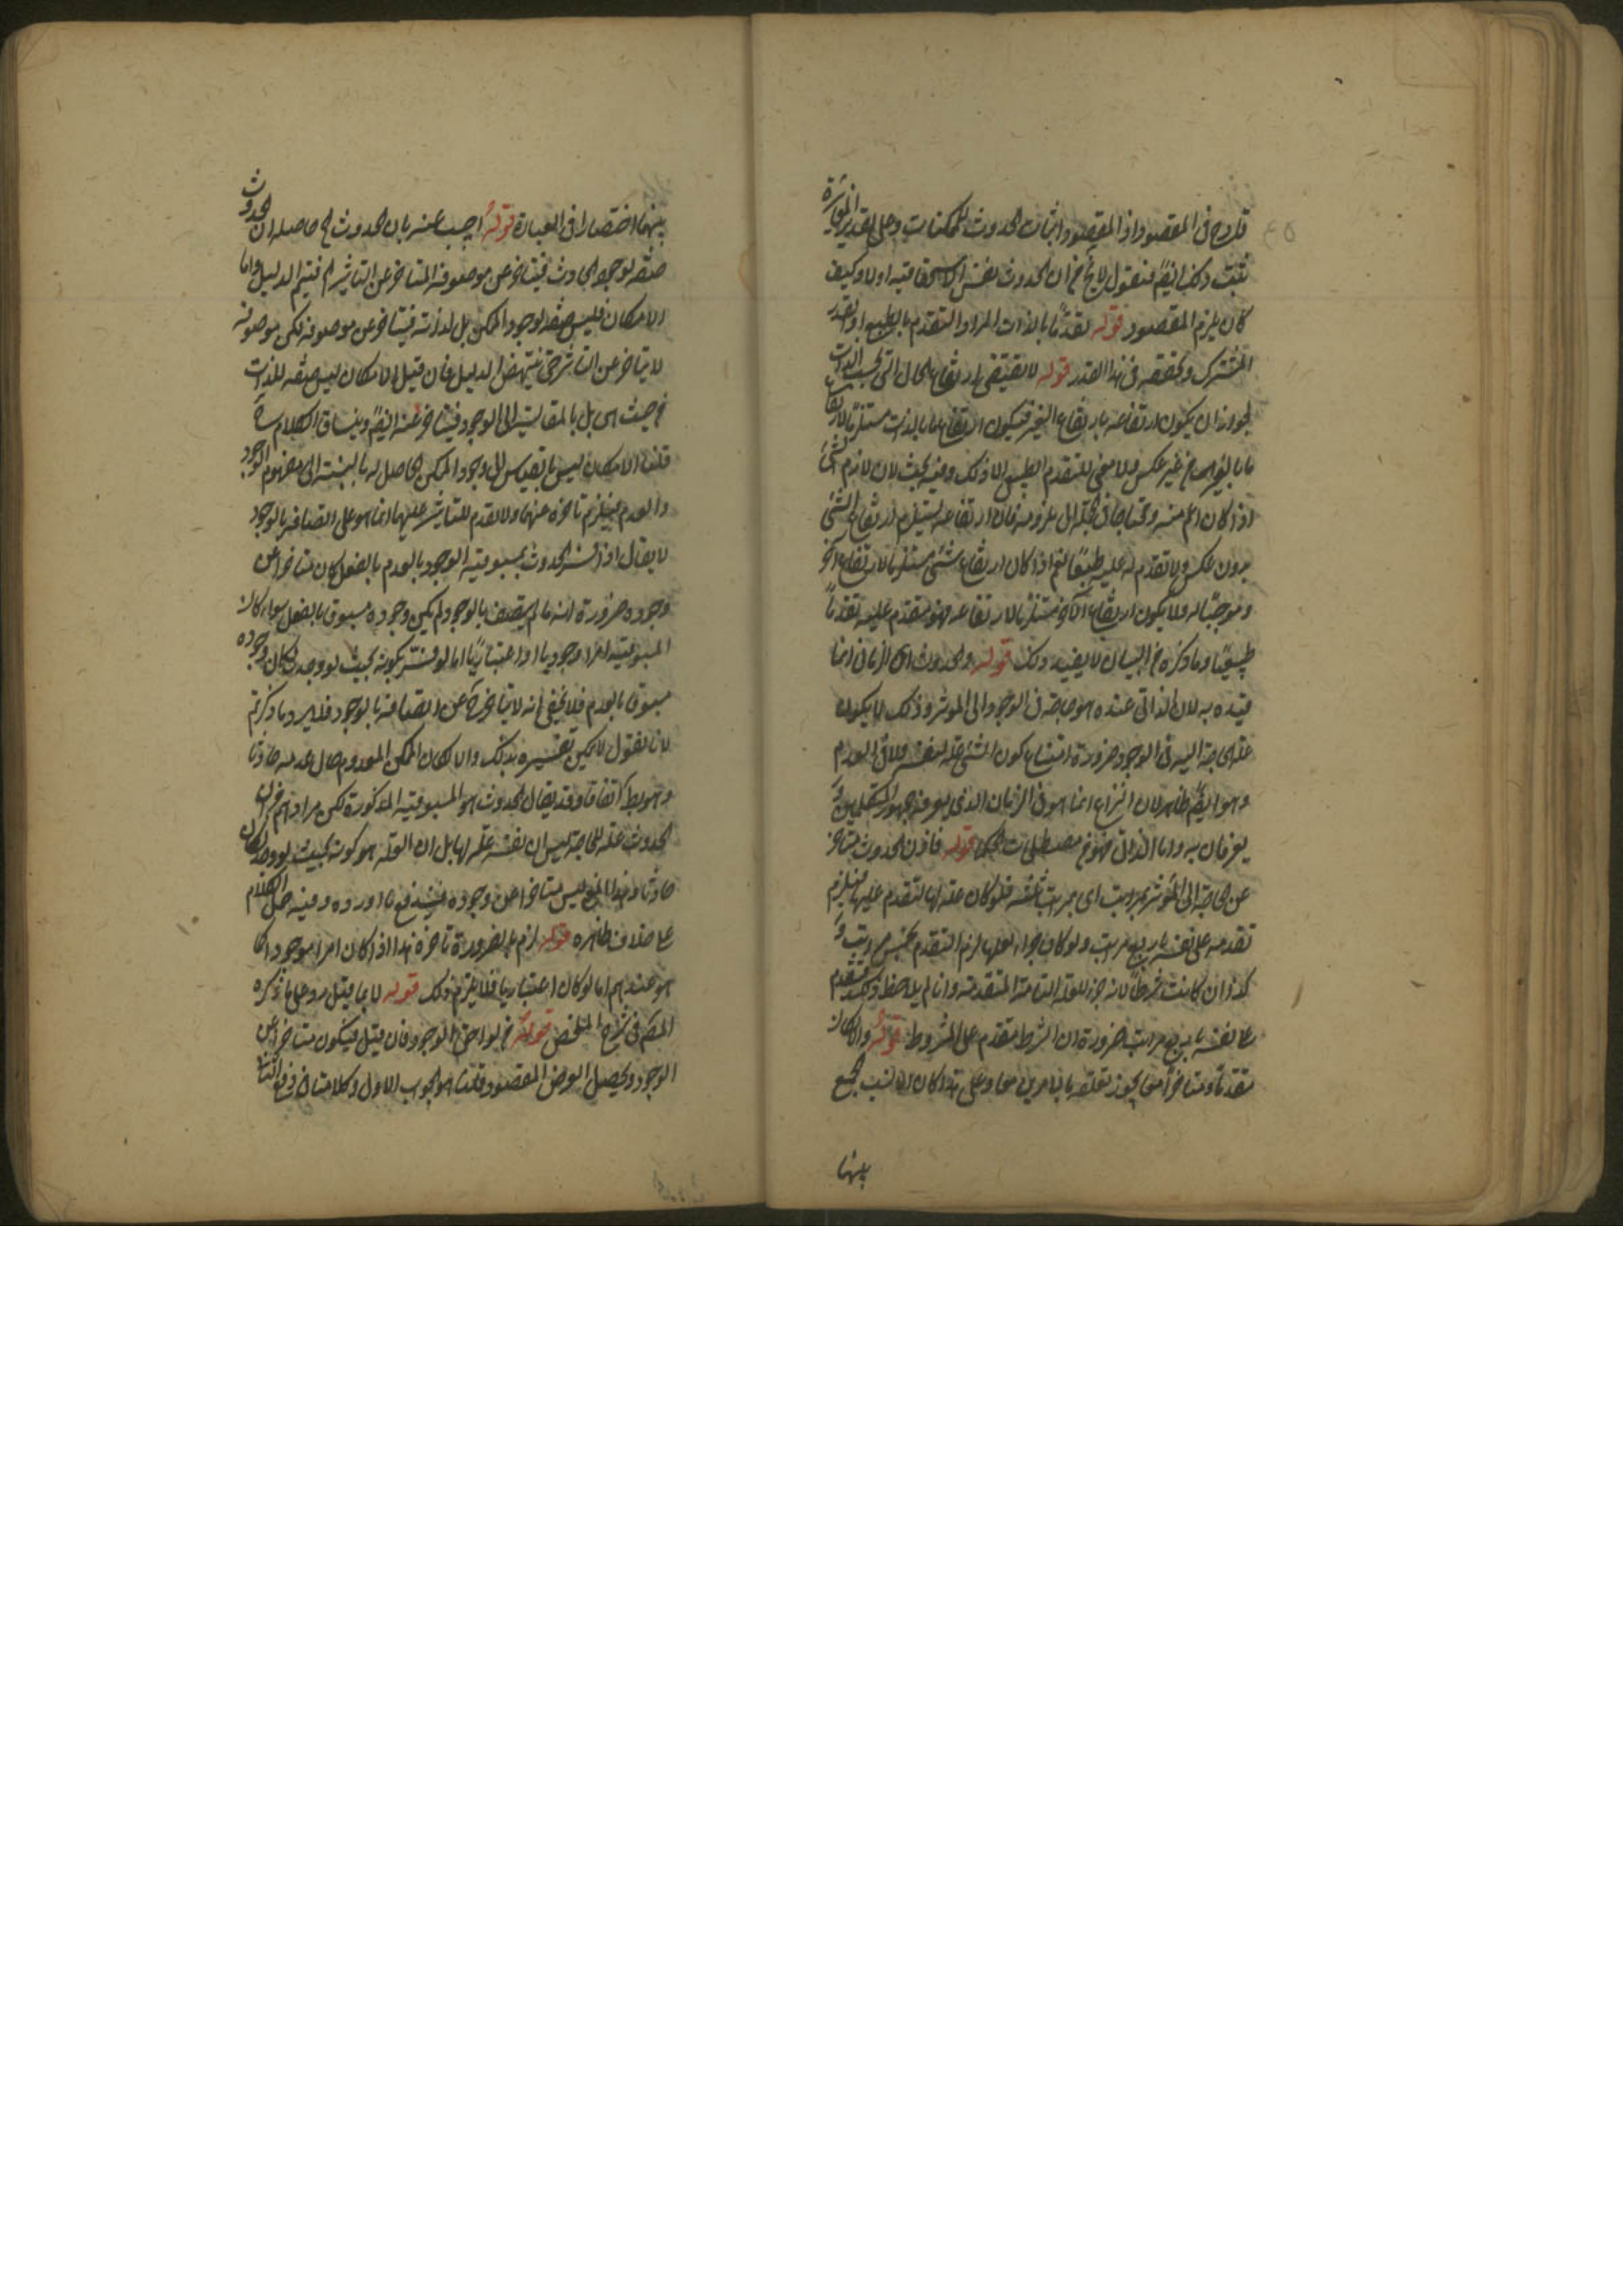 قدح في المقصود اذ المقصود اثبات الحدوث للممكنات وعلى تقدير المغايرة
يثبت ذلك ايضً فنقول لا يخ من ان الحدوث نفس الاستحقاقية او لا وكيف
كان يلزم المقصود قوله تقدمًا بالذات المراد التقدم بالطبع او القدر
المشترك وتحققه في هذا القدر قوله لا يقتضي ارتفاع الحال التي بحسب الذات
لجواز ان يكون ارتفاعه بارتفاع الغير فيكون ارتفاع ما بالذات مستلزمًا لارتفاع
ما بالغير من غير عكس ولا معنى للتقدم الطبيعي الا ذلك وفيه بحث لان لازم الشئ
اذا كان اعم منه ومحتاجا في تحققه الى ملزومه فان ارتفاعه يستلزم ارتفاع الشئ
بدون عكس ولا تقدم له عليه طبعًا نعم اذا كان ارتفاع شئ مستلزما لارتفاع آخر
وموجبًا له ولا يكون ارتفاع الآخر مستلزمًا لارتفاعه فهو متقدم عليه تقدمًا
طبيعيًا وما ذكره من البيان لا يفيد ذلك قوله والحدوث اى الزماني انما
قيده به لان الذاتي عنده هو حاجته في الوجود الى المؤثر وذلك لا يكون
علة الحاجة اليه في الوجود ضرورة امتناع كون الشئ علة لنفسه ولان العدم
وهو ايضً ظاهر لان النزاع انما هو في الزمان الذي يعرفه جمهور المتكلمين و
يعرفان به واما الذاتي فهو من مصطلحات الحكما قوله فاذن الحدوث متأخر
عن الحاجة الى المؤثر بمراتب اى بمراتب ثلثه فلو كان علة لها لتقدم عليها فيلزم
تقدمه على نفسه باربع مراتب ولو كان جزاء لعلها لزم التقدم بخمس مراتب و
كذا ان كانت شرطاً لانه جزء للعلة التامة المتقدمة وانا لم يلاحظ ذلك تقدم
على نفسه باربع مراتب ضرورة ان الشرط متقدم على المشروط قوله والامكان
متقدمًا ومتاخرًا معا يجوز تعلقه بالامرين معا وعلى هذا كان الانسب الجمع
بينهما
بينهما اختصارا في العبارة قوله اجيب عنه بان الحدوث الخ حاصله ان الحدوث
صفة لوجود الحادث فيتاخر عن موصوفه المتاخر عن التاثير الخ فيتم الدليل واما
الامكان فليس صفة لوجود الممكن بل لذاته فيتاخر عن موصوفه لكن موصوفه
لا يتاخر عن التاثير حتى ينتهض الدليل فان قيل الامكان ليس صفة للذات
من حيث هى بل بالمقايسة الى الوجود فيتاخر عنه ايضً وينساق الكلام
قلنا الامكان ليس بالقياس الى وجود الممكن الحاصل له بالنسبة الى مفهوم الوجود
والعدم فيلزم تاخره عنهما ولا تقدم للتاثير عليهما انما هو على اتصافه بالوجود
لا يقال اذا فسر الحدوث بمسبوقية الوجود بالعدم بالفعل كان متاخرا عن
وجوده ضرورة انه ما لم يتصف بالوجود لم يكن وجوده مسبوقا بالفعل سواء كان
المسبوقية امرا وجوديا او اعتباريًا اما لو فسر بكونه بحيث لو وجد لكان وجوده
مسبوقا بالعدم فلا يخفى انه لا يتاخر ح عن اتصافه بالوجود فلا يرد ما ذكرتم
لانا نقول لا يمكن تفسيره بذلك والا لكان الممكن المعدوم حال عدمه حادثا
وهو بط اتفاقا وقد يقال الحدوث هو المسبوقية المذكورة لكن مرادهم من ان
الحدوث علة للحاجة ليس ان نفسه علة لها بل ان العلة هو كونه بحيث لو وجد لكان
حادثا وهذا المعنى ليس متاخرا عن وجوده فيندفع ما اورده وفيه حمل الكلام
على خلاف ظاهره قوله لزم بالضرورة تاخره هذا اذا كان امرا موجودا كما
هو عندهم اما لو كان اعتباريا فلا يلزم ذلك قوله لا بما قيل رد على ما ذكره
المصً في شرح الملخص قوله من لواحق الوجود فان قيل فيكون متاخرا عن
الوجود ويحصل الغرض المقصود قلنا هو الجواب الاول وكلامنا في دفع الثاني